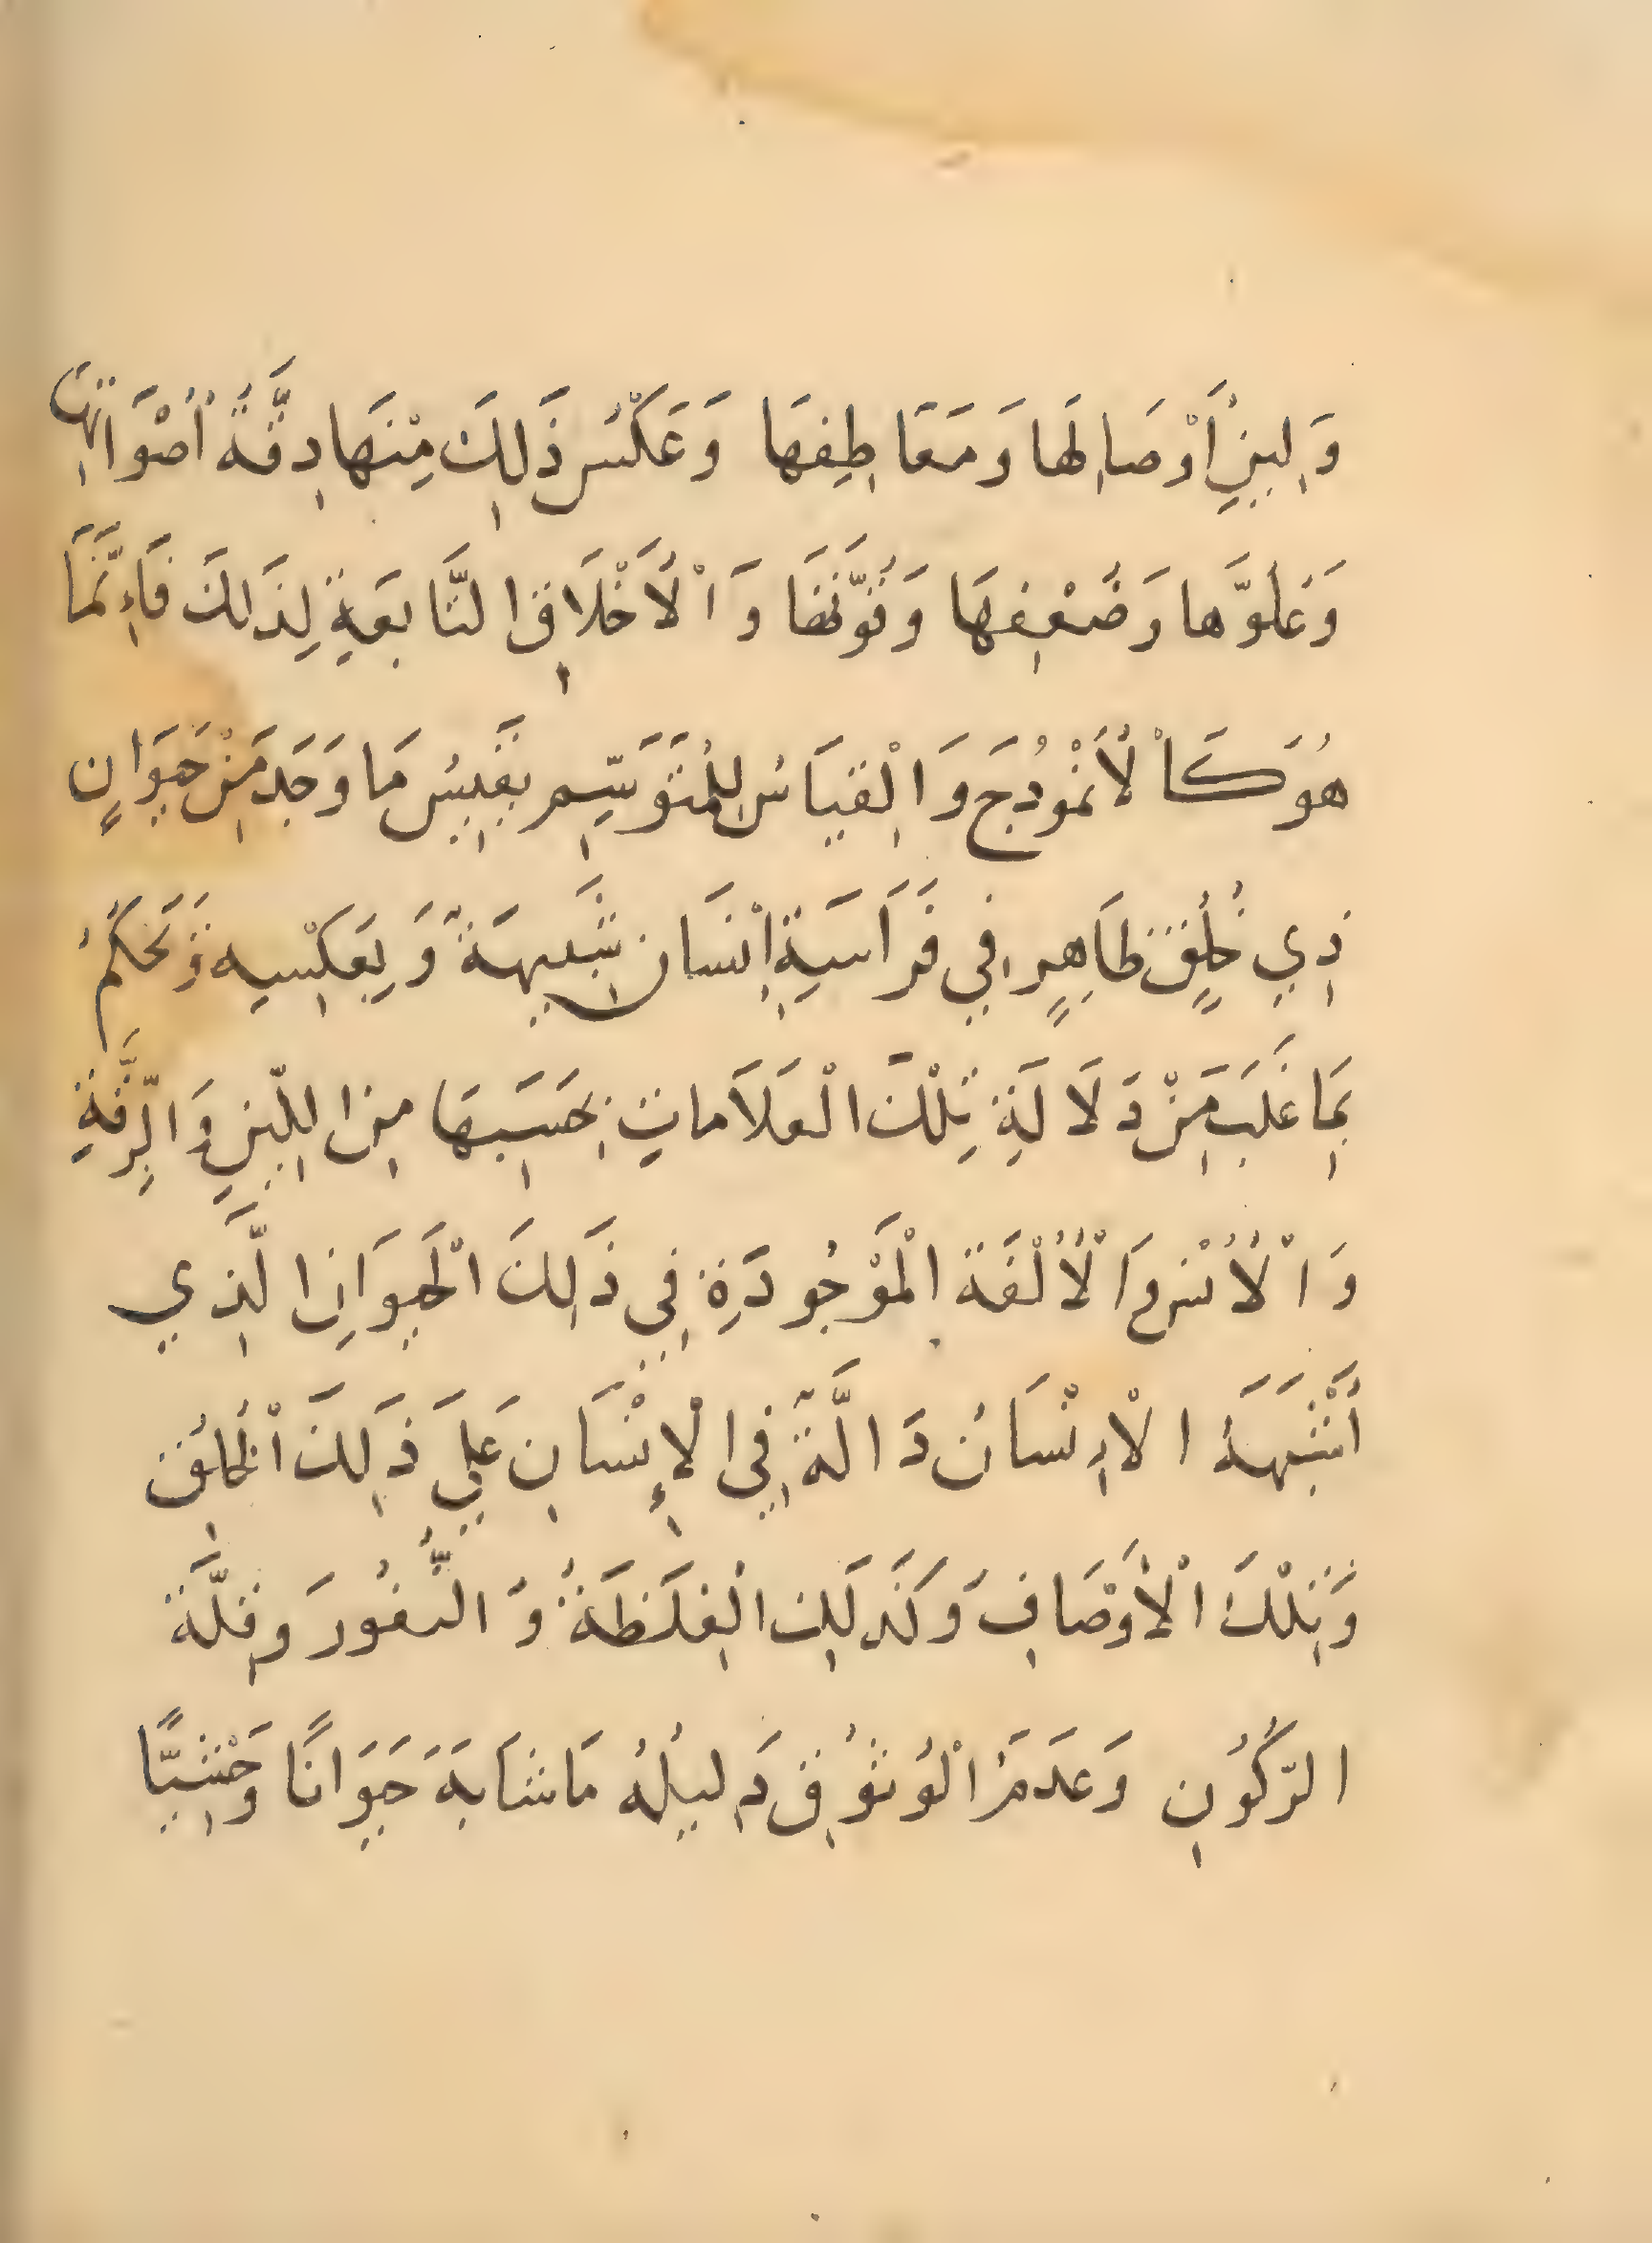 وَلِينِ أَوْصَالِهَا وَمَعَاطِفِهَا وَعَكْسُ ذَلِكَ مِنْهَا دِقَّةُ أَصْوَاتِهَا
وَعُلُوَّهَا وَضُعْفِهَا وَقُوَّتِهَا وَالْأَخْلَاقِ التَّابِعَةِ لِذَلِكَ فَإِنَّمَا
هُوَ كَالْأَنْمُوذَجِ وَالْقِيَاسُ لِلْمُتَوَسِّمِ يَقِيسُ مَا وَجَدَ مِنْ حَيَوَانٍ
ذِي خُلُقٍ ظَاهِرٍ فِي فَرَاسَةِ إِنْسَانٍ شَبِيهَةً وَبِعَكْسِهِ وَتَحْكُمُ
بِمَا غَلَبَ مِنْ دَلَالَةِ تِلْكَ الْعَلَامَاتِ بِحَسَبِهَا مِنَ اللِّينِ وَالرِّقَّةِ
وَالْأُنْسِ وَالْأُلْفَةِ الْمَوْجُودَةِ فِي ذَلِكَ الْحَيَوَانِ الَّذِي
أَشْبَهَهُ الْإِنْسَانُ دَالَّةً فِي الْإِنْسَانِ عَلَي ذَلِكَ الْخُلُقِ
وَتِلْكَ الْأَوْصَافِ وَكَذَلِكَ الْغِلَظَةُ وَالنُّفُورَ وَقِلَّةَ
الرُّكُونِ وَعَدَمَ الْوُثُوقِ دَلِيلُهُ مَا شَابَهَ حَيَوَانًا وَحْشِيًّا